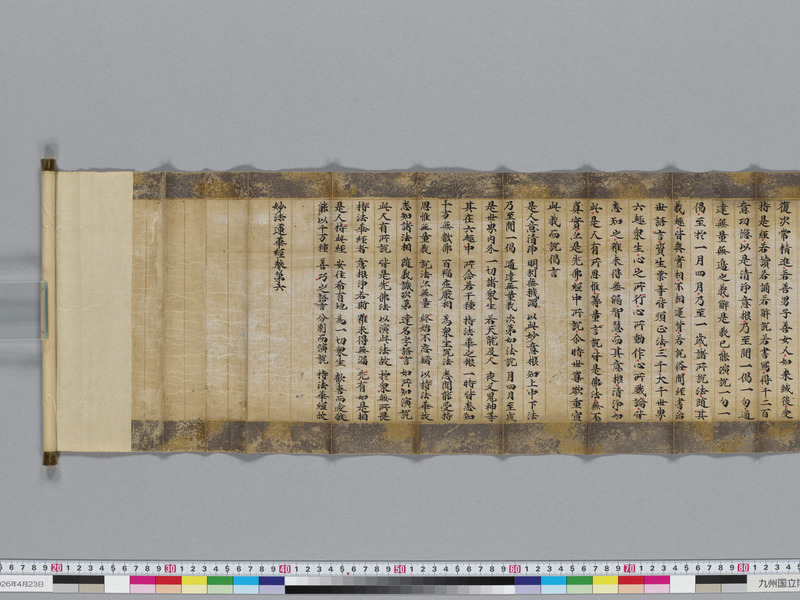 復次常精進若善男子善女人如來滅後受
持是經若讀若誦若解說若書寫得千二百
意功德以是清淨意根乃至聞一偈一句通
達無量無邊之義解是義已能演說一句一
偈至於一月四月乃至一歲諸所說法隨其
義趣皆與實相不相違背若說俗間經書治
世語言資生業等皆順正法三千大千世界
六趣眾生心之所行心所動作心所戲論皆
悉知之雖未得無漏智慧而其意根清淨如
此是人有所思惟籌量言說皆是佛法無不
真實亦是先佛經中所說介時世尊欲重宣
此義而說偈言
是人意清淨 明利無穢濁 以此妙意根 知上中下法
乃至聞一偈 通達無量義 次第如法說 月四月至歲
是世界內外 一切諸眾生 若天龍及人 夜叉鬼神等
其在六趣中 所念若干種 持法華之報 一時皆悉知
十方無數佛 百福莊嚴相 為眾生說法 悉聞能受持
思惟無量義 說法亦無量 終始不忘錯 以持法華故
悉知諸法相 隨義識次第 達名字語言 如所知演說
此人有所說 皆是先佛法 以演此法故 於眾無所畏
持法華經者 意根淨若斯 雖未得無漏 先有如是相
是人持此經 安住希有地 為一切眾生 歡喜而愛敬
能以千万種 善巧之語言 分別而演說 持法華經故
妙法蓮華經卷第六
6 7 8 9 20 1 2 3 4 5 6 7 8 9 30 1 2 3 4 5 6 7 8 9 40 1 2 3 4 5 6 7 8 9 50 1 2 3 4 5 6 7 8 9 60 1 2 3 4 5 6 7 8 9 70 1 2 3 4 5 6 7 8 9 80 1 2 3 4
026年4月23日
九州国立博